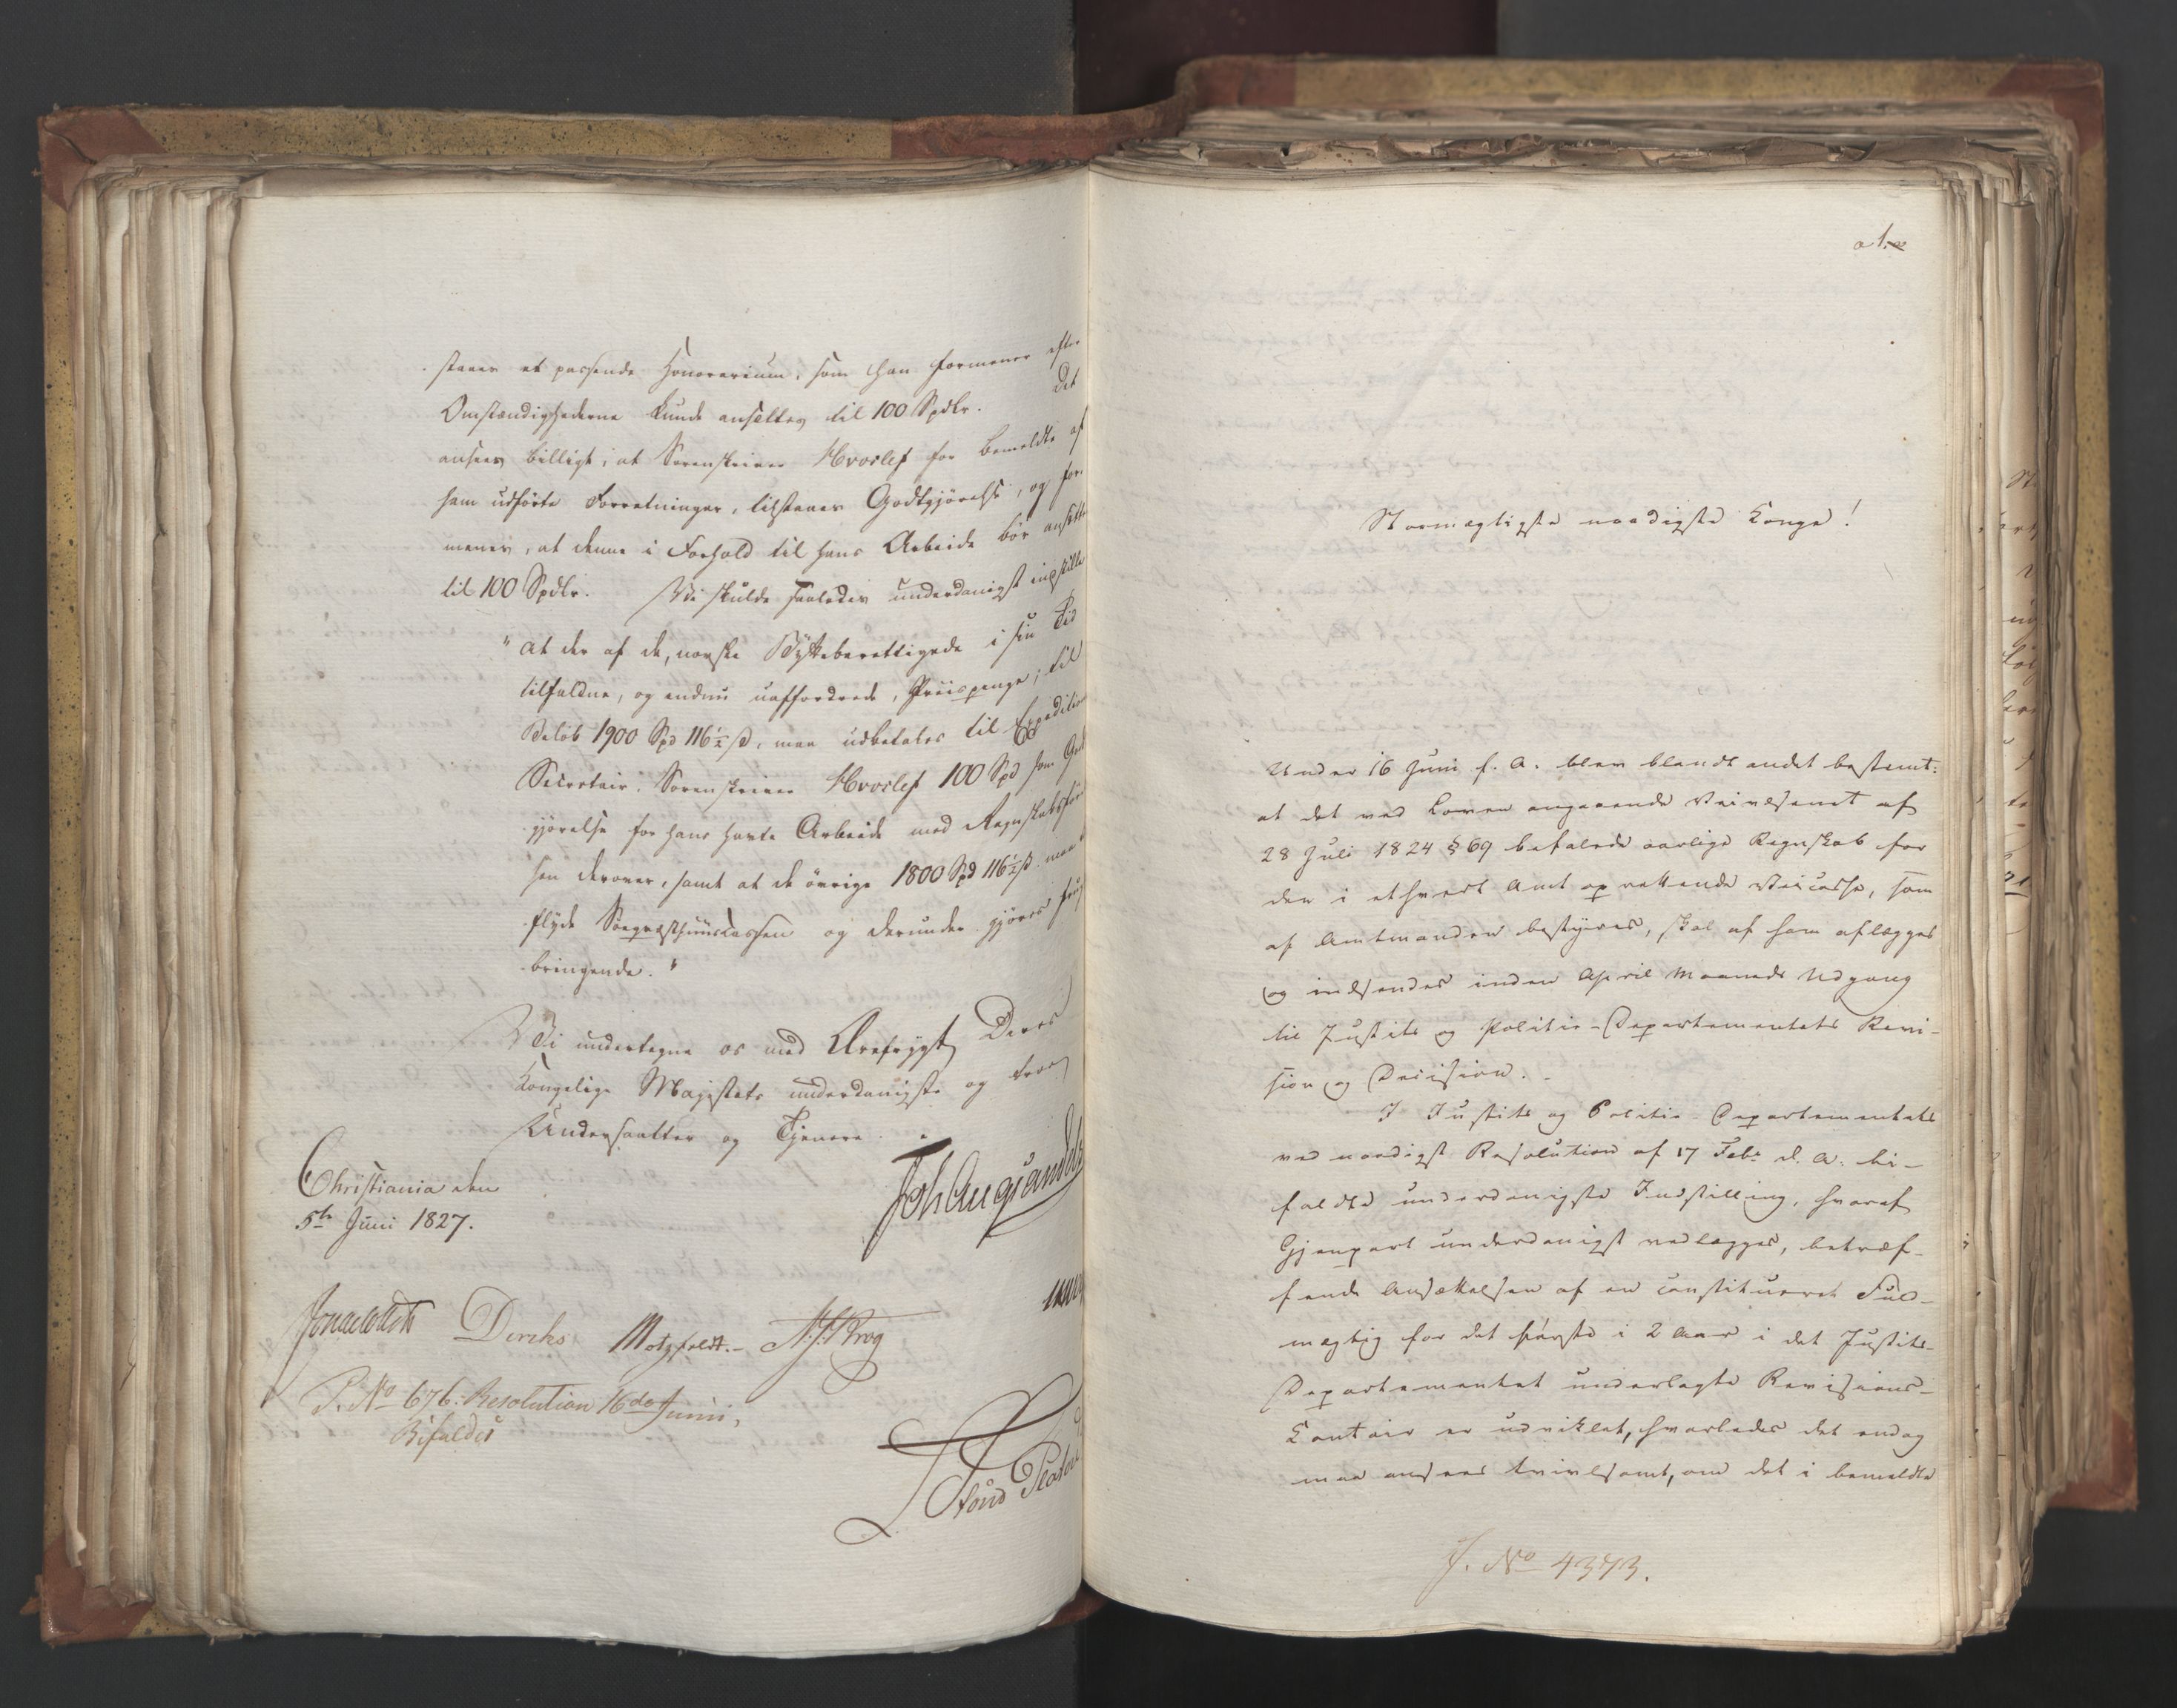 staaes et passende Honorarium, som han formener efter
Omstændighederne kunde ansættes til 100 Spdlr. Det
ansees billigt, at Sorenskriver Hvoslef for bemeldte af
ham udførte Forretninger, tilstaaes Godtgjørelse, og for-
menes, at denne i Forhold til hans Arbeide bør ansættes
til 100 Spdlr. Vi skulde saaledes underdanigst indstille
"At der af de, norske Bytteberettigede i sin Tid
tilfaldne, og endnu uaffordrede, Priispenge, til
Beløb 1900 Spd 116½ ß, maa udbetales til Expeditions
Secretair, Sorenskriver Hvoslef 100 Spd som Godt
gjørelse for hans havte Arbeide med Regnskabsførel
sen derover, samt at de øvrige 1800 Spd 116½ ß maa
tilflyde Søeqvæsthuuscassen og derunder gjøres frugt
bringende."
Vi undertegne os med Ærefrygt Deres
Kongelige Majestæts underdanigste og troe
Undersaatter og Tjenere.
Christiania den
5te Juni 1827.
Joh Aug Sandels
Diriks Motzfeldt.- Krog
P. No 676. Resolution 16de Junii,
Bifaldes
Platen
Stormægtigste naadigste Konge!
Under 16 Juni f. A. blev blandt andet bestemt:
at det ved Loven angaaende Veivæsenet af
28 Juli 1824 § 69 befalede aarlige Regnskab for
den i ethvert Amt oprettende Veicasse, som
af Amtmanden bestyres, skal af ham aflægges
og indsendes inden April Maaneds Udgang
til Justits og Politie-Departementets Revi-
sion og Decision.
I Justits og Politie-Departementets
ved naadigst Resolution af 17 Febr d. A. bi-
faldte underdanigste Indstilling, hvoraf
Gjenpart underdanigst vedlægges, betræf-
fende Ansættelsen af en constitueret Fuld-
mægtig for det første i 2 Aar i det Justits-
Departementet underlagte Revisions-
Contoir er udviklet, hvorledes det endog
maa ansees tvivlsomt, om det i bemeldte
J. No 4373.